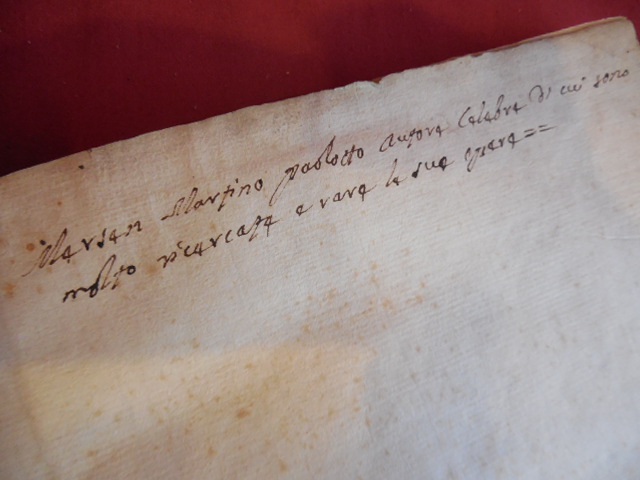 Mersen Martino paolotto autore celebre di cui sono
molto ricercate e rare le sue opere==